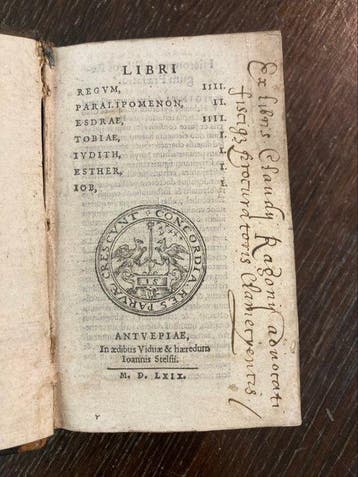 LIBRI
REGVM, IIII.
PARALIPOMENON, II.
ESDRAE, IIII.
TOBIAE, I.
IVDITH, I.
ESTHER, I.
IOB, I.
CONCORDIA RES PARVÆ CRESCVNT
ANTVEPIAE,
In ædibus Viduæ & hæredum
Ioannis Stelsii.
M. D. LXIX.
Ex libris Claudij Ragonij advocati
fiscique procuratoris